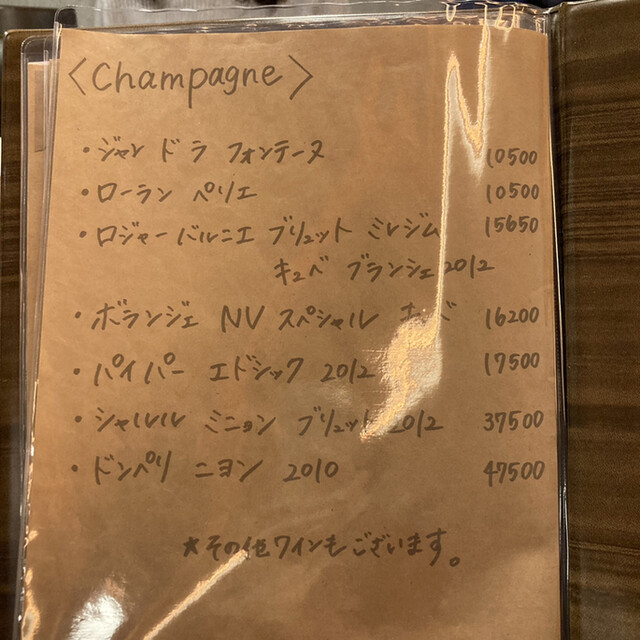 〈Champagne〉
・ジャン ド ラ フォンテーヌ 10500
・ローラン ペリエ 10500
・ロジャーバルニエ ブリュット ミレジム 15650
キュベ ブランシェ 2012
・ボランジェ NV スペシャル キュベ 16200
・パイパー エドシック 2012 17500
・シャルルル ミニョン ブリュット 2012 37500
・ドンペリ ニヨン 2010 47500
★その他ワインもございます。